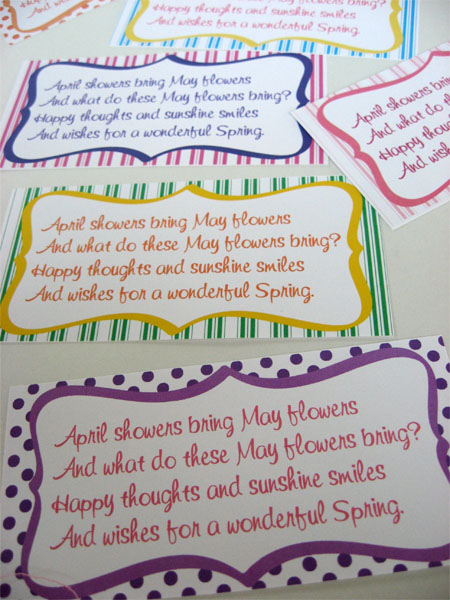 thoughts and sunshine smiles
And wishes for a wonderful Spring.
April showers bring May flowers
And what do these May flowers bring?
Happy thoughts and sunshine smiles
And wishes for a wonderful Spring.
April showers
And what do
Happy thou
And wishes
April showers bring May flowers
And what do these May flowers bring?
Happy thoughts and sunshine smiles
And wishes for a wonderful Spring.
April showers bring May flowers
And what do these May flowers bring?
Happy thoughts and sunshine smiles
And wishes for a wonderful Spring.